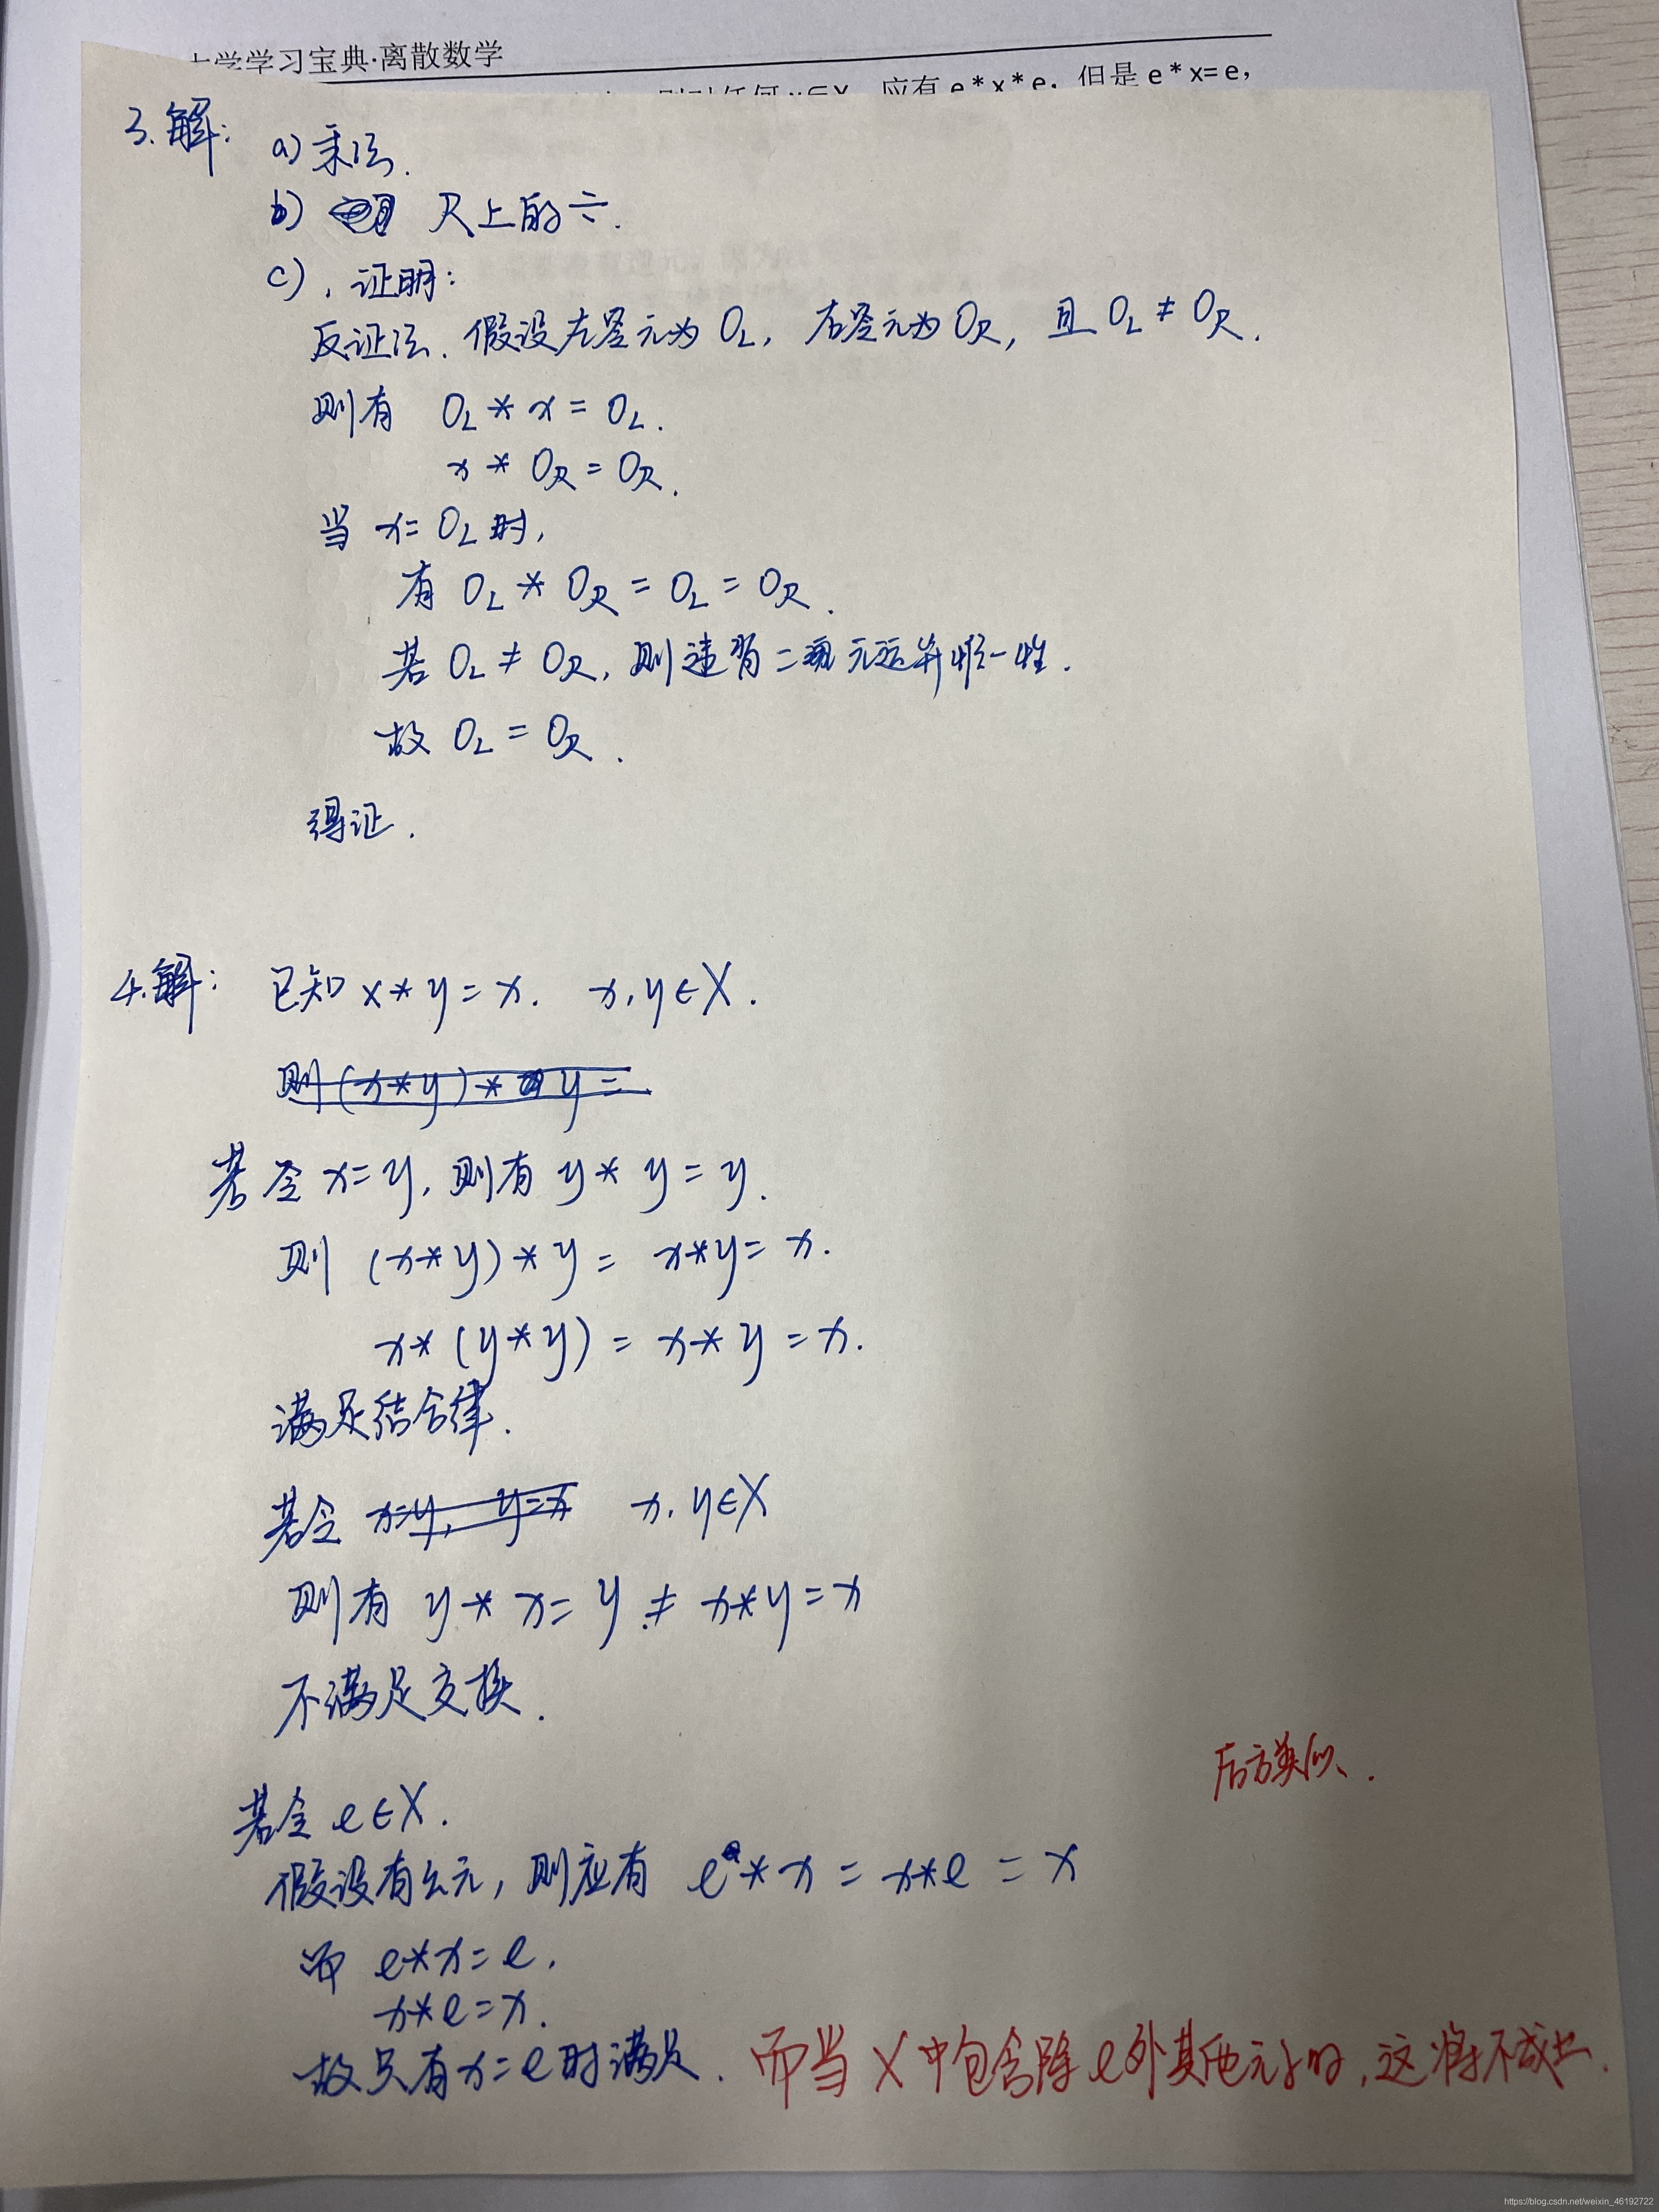 大学学习宝典·离散数学
应有 e*x*e, 但是 e*x=e,
3.解: a) 乘法.
b) R上的÷.
c), 证明:
反证法. 假设左零元为 O_L, 右零元为 O_R, 且 O_L ≠ O_R.
则有 O_L * x = O_L.
x * O_R = O_R.
当 x = O_L 时,
有 O_L * O_R = O_L = O_R.
若 O_L ≠ O_R, 则违背二元运算唯一性.
故 O_L = O_R.
得证.
4.解: 已知 x * y = x. x, y ∈ X.
则 (x*y) * y =
若令 x=y, 则有 y * y = y.
则 (x*y)*y = x*y = x.
x*(y*y) = x*y = x.
满足结合律.
若令 x=y, y=x x, y∈X
则有 y * x = y ≠ x*y = x
不满足交换.
后方类似.
若令 e∈X.
假设有幺元, 则应有 e * x = x*e = x
而 e*x = e.
x*e = x.
故只有 x=e 时满足. 而当 X 中包含除 e 外其他元素时, 这将不成立.
https://blog.csdn.net/weixin_46192722